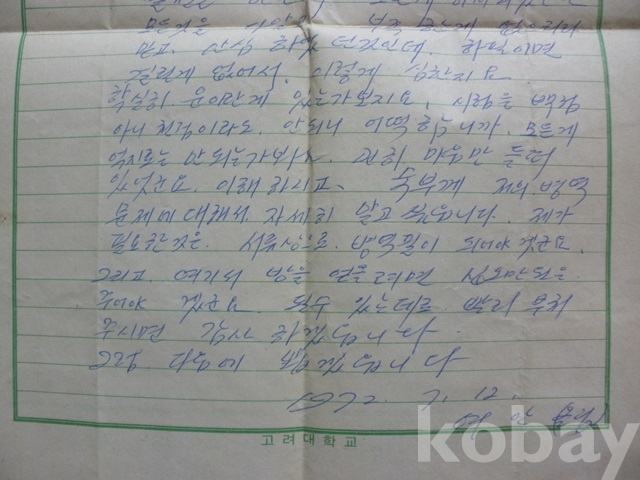 모든것을
믿고 안심 하였던것인데, 하필이면
걸릴게 없어서, 이렇게 심한지요
확실히 운이란게 있는가보지요, 시험을 백점
아니 천점이라도. 안되니 어떡합니까. 모든게
억지로는 안되는가봐. 괜히 마음만 들떠
있었군요. 이해 하시고. 숙부께 저의 병역
문제에 대해서 자세히 알고 싶습니다. 제가
필요한것은. 서류상으로 병역필이 되어야 겠군요.
그리고. 여기서 방을 얻을려면 십오만원을
주어야 겠군요. 될수 있는데로 빨리 부쳐
주시면 감사 하겠습니다.
그럼. 다음에 뵙겠습니다
1972. 7. 12.
고려대학교
kobay